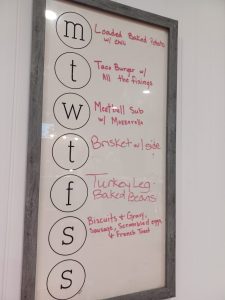 m Loaded Baked Potato
w/ chili
t Taco Burger w/
All the fixings
w Meatball Sub
w/ Mozzarella
t Brisket w/ side
f Turkey Leg -
Baked Beans
s Biscuits & Gravy,
Sausage, Scrambled eggs,
& French Toast
s